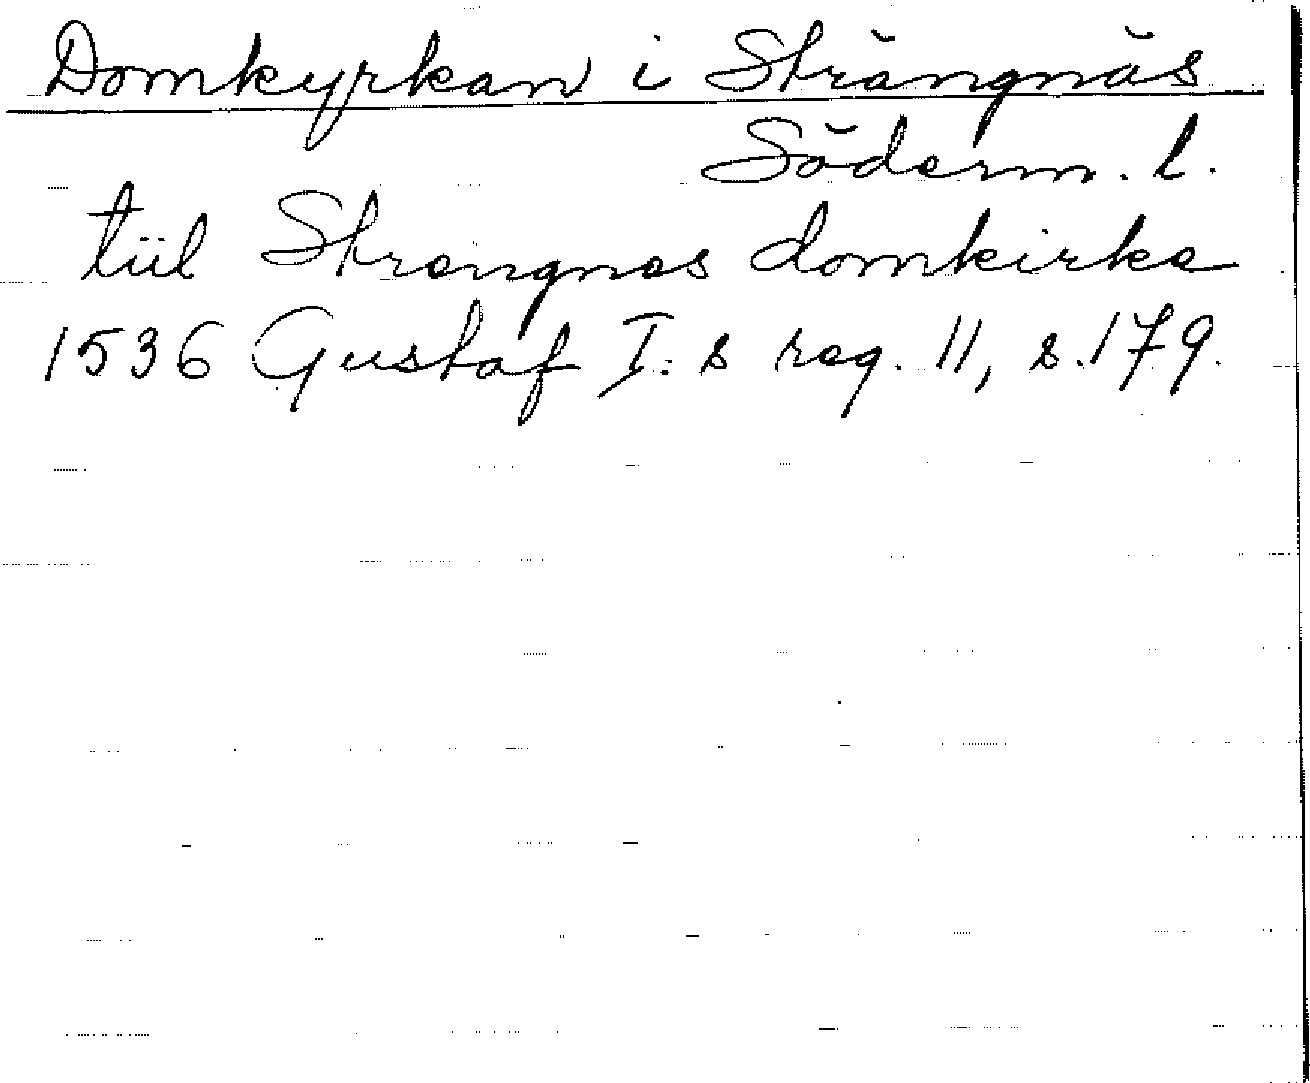 Domkyrkan i Strängnäs
Söderm. l.
tiil Strengnes domkirke
1536 Gustaf I:s reg. 11, s. 179.